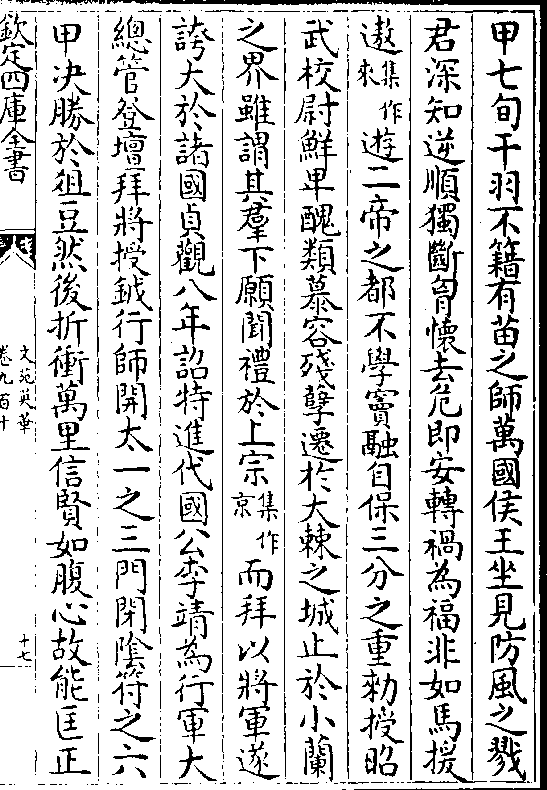 甲七旬干羽不籍有苗之師萬國侯王坐見防風之戮
君深知逆順獨斷胷懷去危即安轉禍為福非如馬援
遨集作來遊二帝之都不學竇融自保三分之重勑授昭
武校尉鮮卑醜類慕容殘孽遷於大棘之城止於小蘭
之界雖謂其羣下願聞禮於上宗集作京而拜以將軍遂
誇大於諸國貞觀八年詔特進代國公李靖為行軍大
總管登壇拜將授鉞行師開太一之三門閉陰符之六
甲决勝於俎豆然後折衝萬里信賢如腹心故能匡正
欽定四庫全書
文苑英華
卷九百十
十七